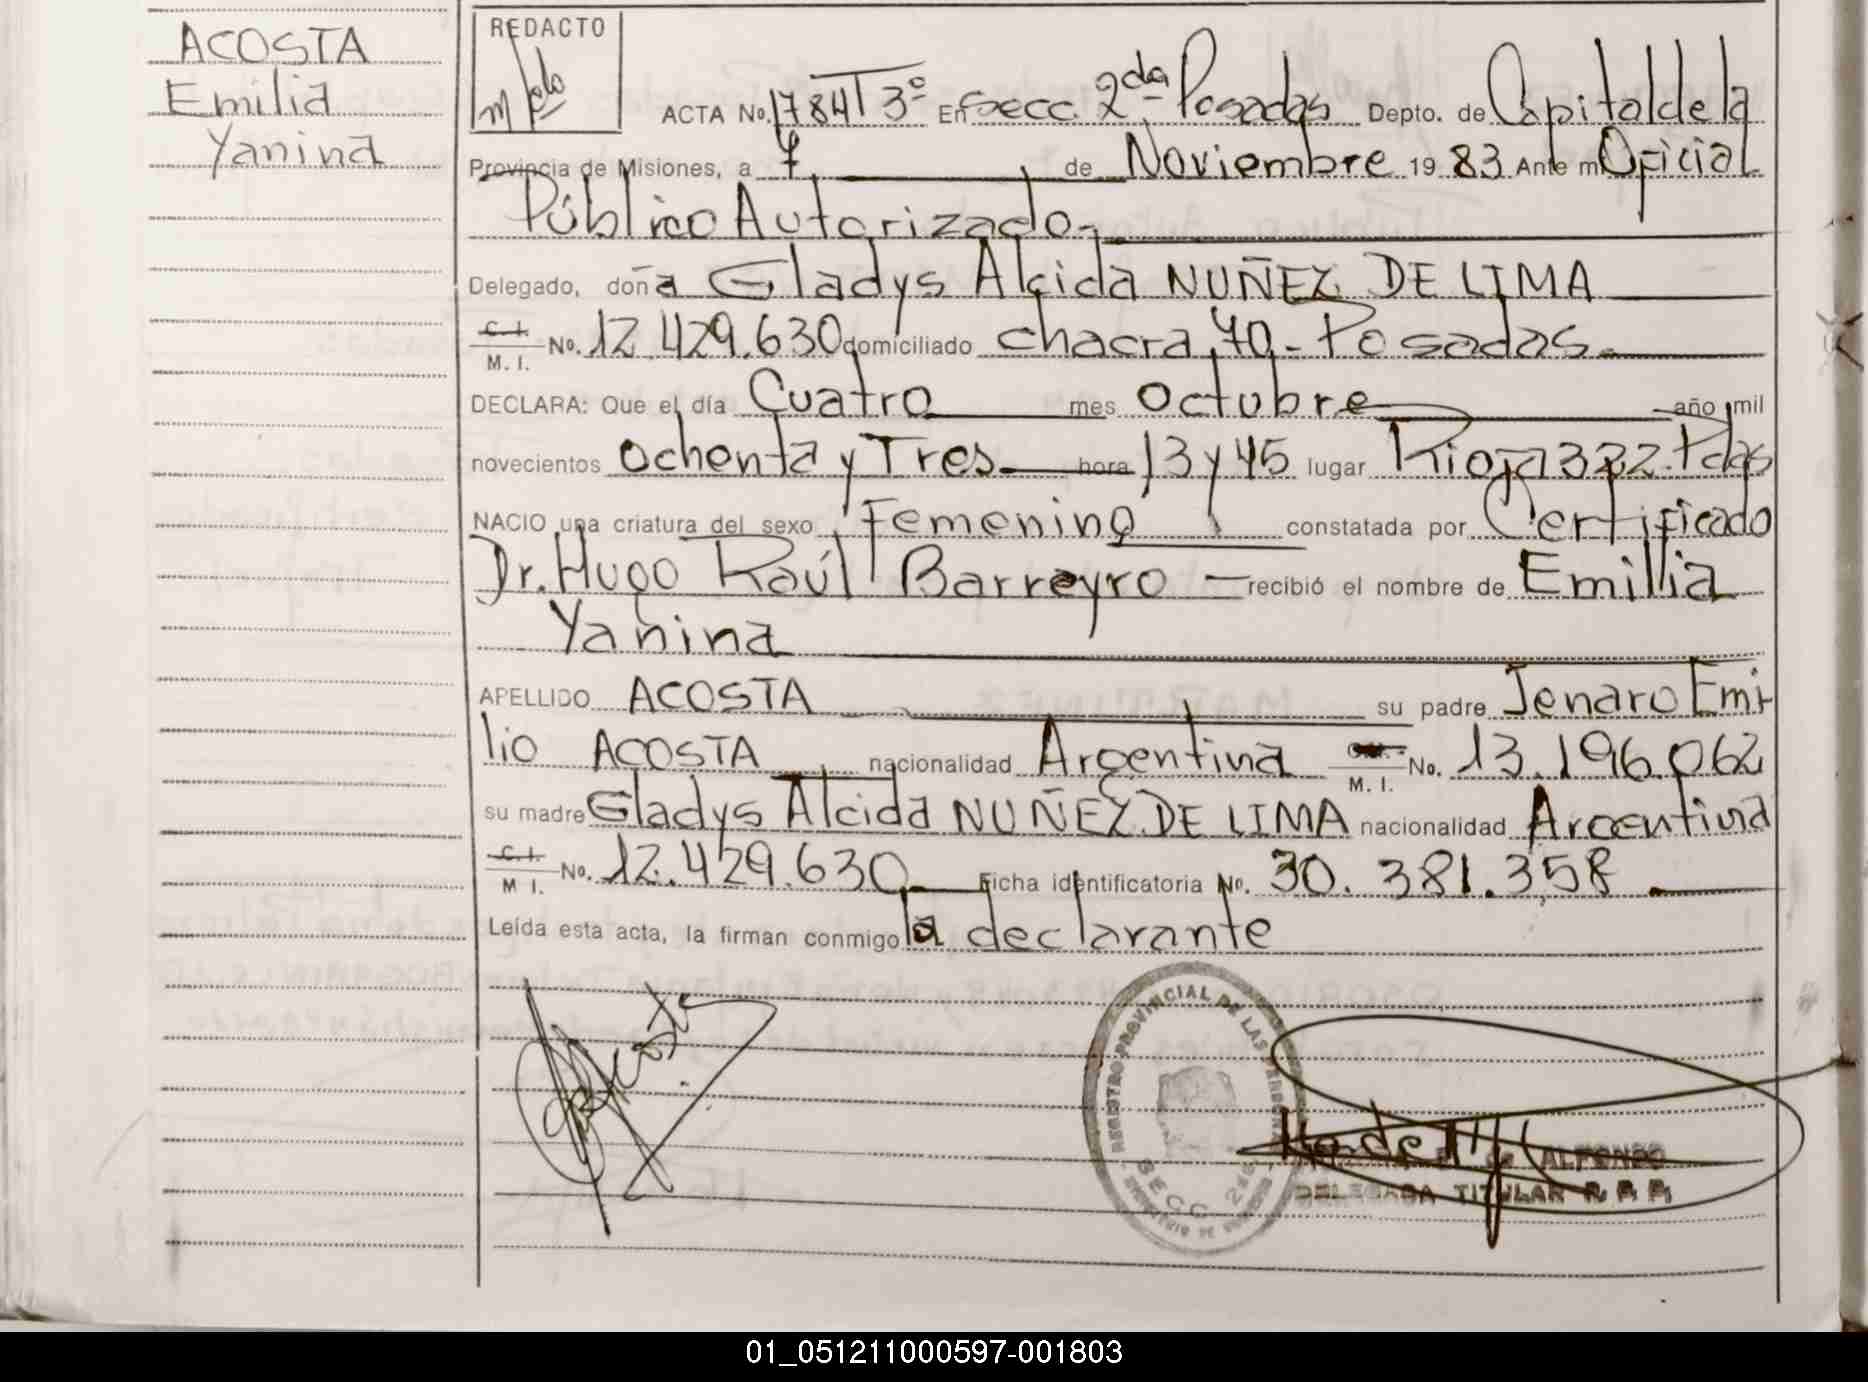 ACOSTA
Emilia
Yanina
REDACTO
ACTA No. 1784 T 3º En secc. 2da Posadas Depto. de Capital de la
Provincia de Misiones, a 7 de Noviembre 1983 Ante mi Oficial
Público Autorizado.
Delegado, doña Gladys Alcida NUÑEZ DE LIMA
C. I. / M. I. No. 12.429.630 domiciliado chacra 70 - Posadas.
DECLARA: Que el día Cuatro mes octubre año mil
novecientos ochenta y Tres. hora 13 y 45 lugar Rioja 322. Pdas
NACIO una criatura del sexo Femenino constatada por Certificado
Dr. Hugo Raúl Barreyro — recibió el nombre de Emilia
Yanina
APELLIDO ACOSTA su padre Jenaro Emi-
lio ACOSTA nacionalidad Argentina M. I. No. 13.196.062
su madre Gladys Alcida NUÑEZ DE LIMA nacionalidad Argentina
C. I. / M I. No. 12.429.630 Ficha identificatoria No. 30.381.358.
Leída esta acta, la firman conmigo la declarante
Acosta
REGISTRO PROVINCIAL DE LAS PERSONAS
SECC. 2da
de ALFONSO
DELEGADA TITULAR R. P. P.
01_051211000597-001803